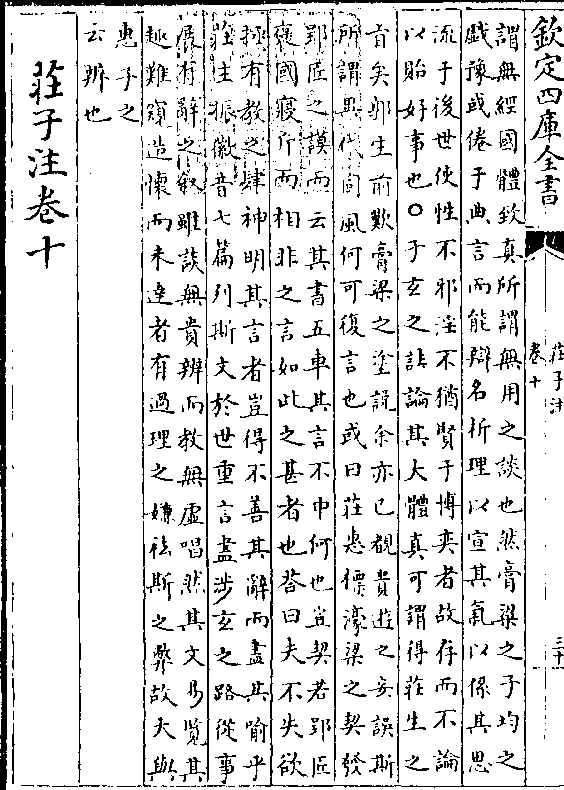 欽定四庫全書
莊子注
卷十
三十
謂無經國體致真所謂無用之談也然膏粱之子均之
戲豫或倦于典言而能辯名析理以宣其氣以係其思
流于後世使性不邪淫不猶賢于博奕者故存而不論
以貽好事也○子玄之註論其大體真可謂得莊生之
旨矣郭生前歎膏粱之塗說余亦已覩貴遊之妄誤斯
所謂異代同風何可復言也或曰莊惠標濠梁之契發
郢匠之謨而云其書五車其言不中何也豈契若郢匠
褒國寢斤而相非之言如此之甚者也荅曰夫不失欲
極有教之肆神明其言者豈得不善其辭而盡其喻乎
莊生振徽音七篇列斯文於世重言盡涉玄之路從事
展有辭之叙雖談無貴辨而教無虛唱然其文易覽其
趣難窺造懷而未達者有過理之嫌祛斯之弊故大與
惠子之
云辨也
莊子注卷十